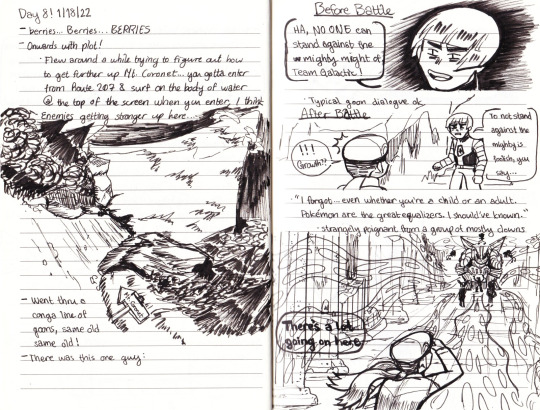 Day 8! 1/18/22
- berries... Berries... BERRIES
- Onwards with plot!
· Flew around a while trying to figure out how
to get further up Mt. Coronet... you gotta enter
from Route 207 & surf on the body of water
@ the top of the screen when you enter, I think
Enemies getting stronger up here...
- Went thru a
conga line of
goons, same old
same old!
- There was this one guy:
Before Battle
HA, NO ONE can
stand against the
mighty might of
Team Galactic!
· Typical goon dialogue ok
After Battle
!!!
Growth??
To not stand
against the
mighty is
foolish, you
say...
· "I forgot... even whether you're a child or an adult.
Pokémon are the great equalizers. I should've known."
· strangely poignant from a group of mostly clowns
There's a lot
going on here